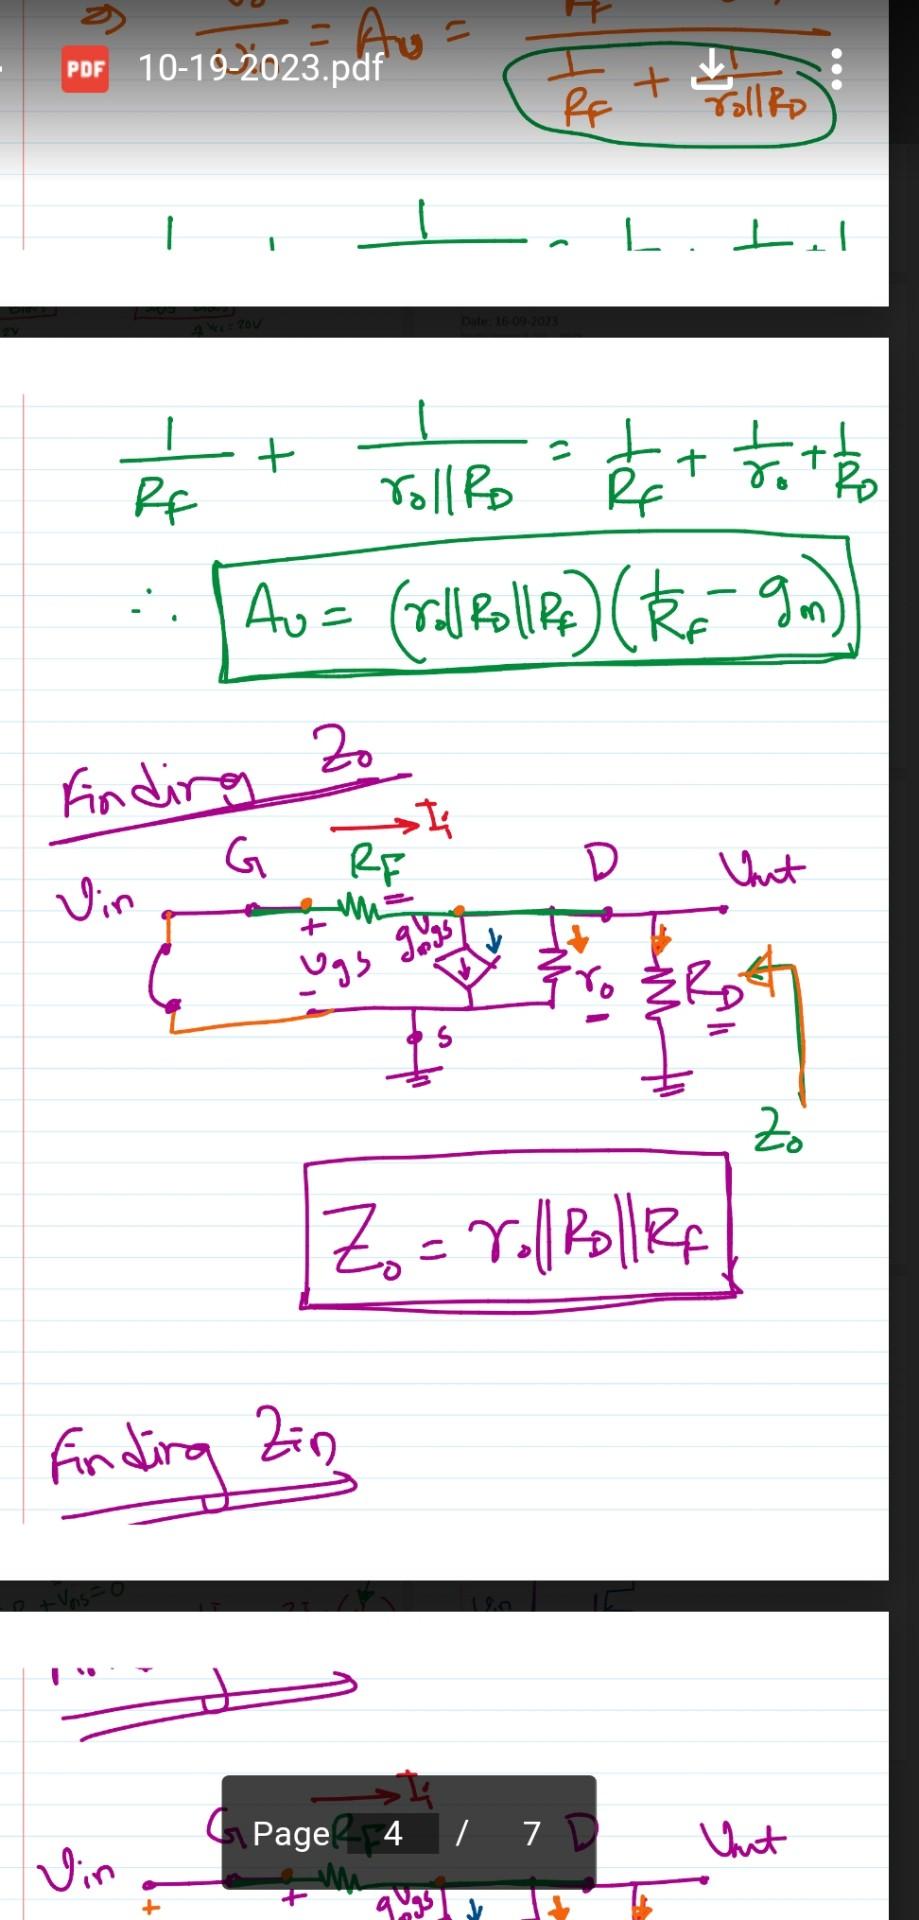 ⇒ = Av =
PDF 10-19-2023.pdf
1/RF + 1/ro||RD
Date: 16-09-2023
1/RF + 1/ro||RD = 1/RF + 1/ro + 1/RD
∴ Av = (ro||RD||RF)(1/RF - gm)
Finding Zo
→ Ii
G RF D
Vin Vout
+ Vgs - gmVgs ro RD
S
Zo
Zo = ro||RD||RF
Finding Zin
→ Ii
G Page 4 / 7 D
Vin Vout
+ + gmVgs